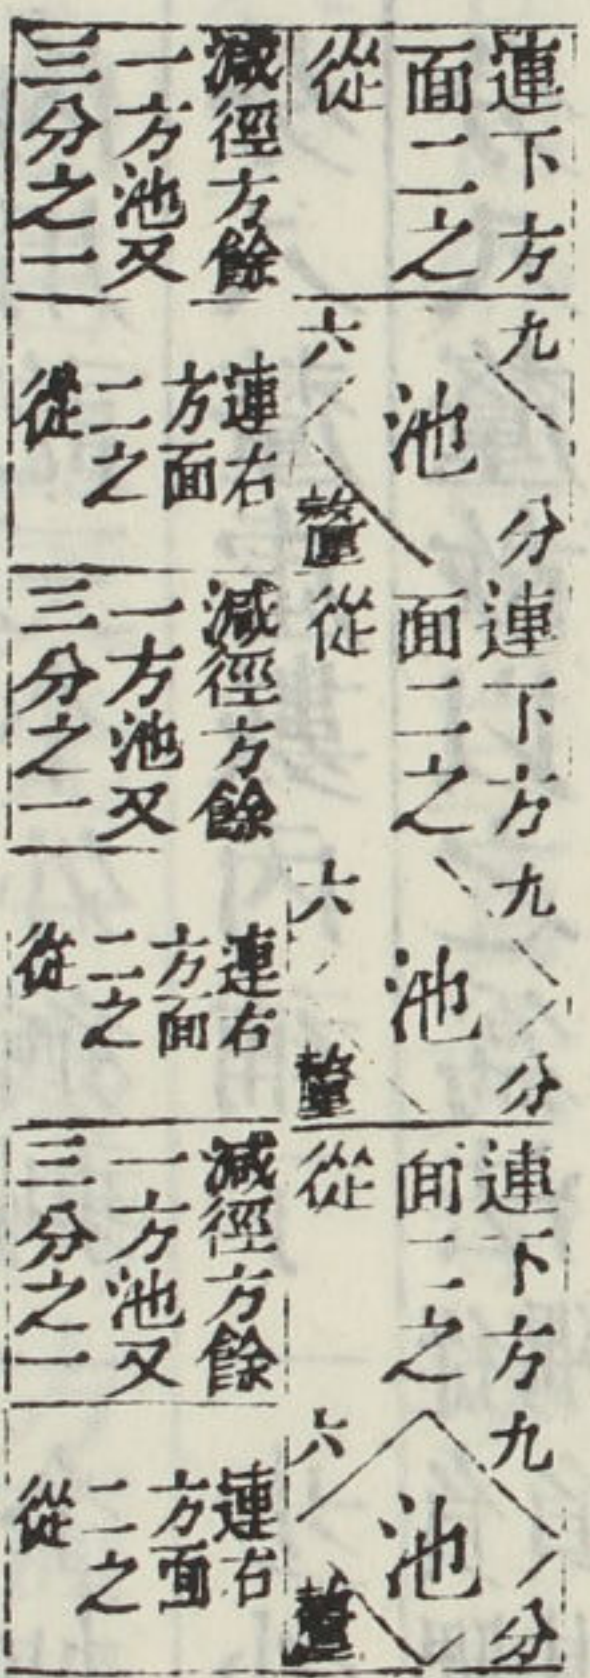 連下方
面二之
從
減徑方餘
一方池又
三分之一
九分
池
六釐
連右
方面
二之
從
連下方
面二之
從
減徑方餘
一方池又
三分之一
九分
池
六釐
連右
方面
二之
從
連下方
面二之
從
減徑方餘
一方池又
三分之一
九分
池
六釐
連右
方面
二之
從